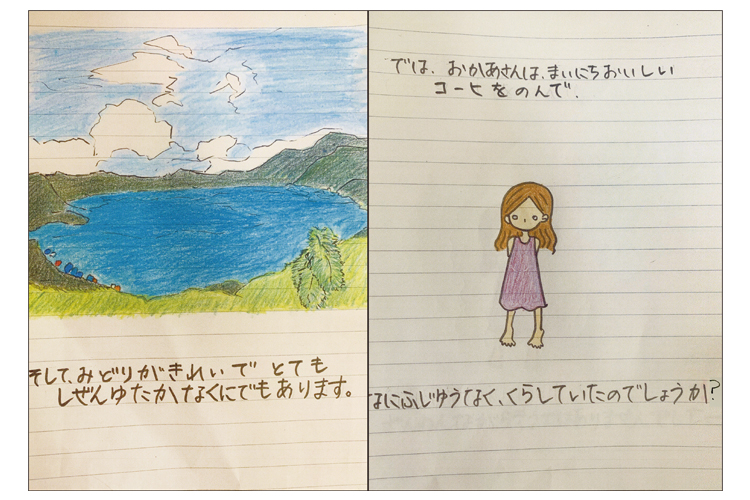 そして、みどりがきれいで とても
しぜんゆたかなくにでもあります。
では、おかあさんは、まいにちおいしい
コーヒをのんで、
なにふじゆうなく、くらしていたのでしょうか?